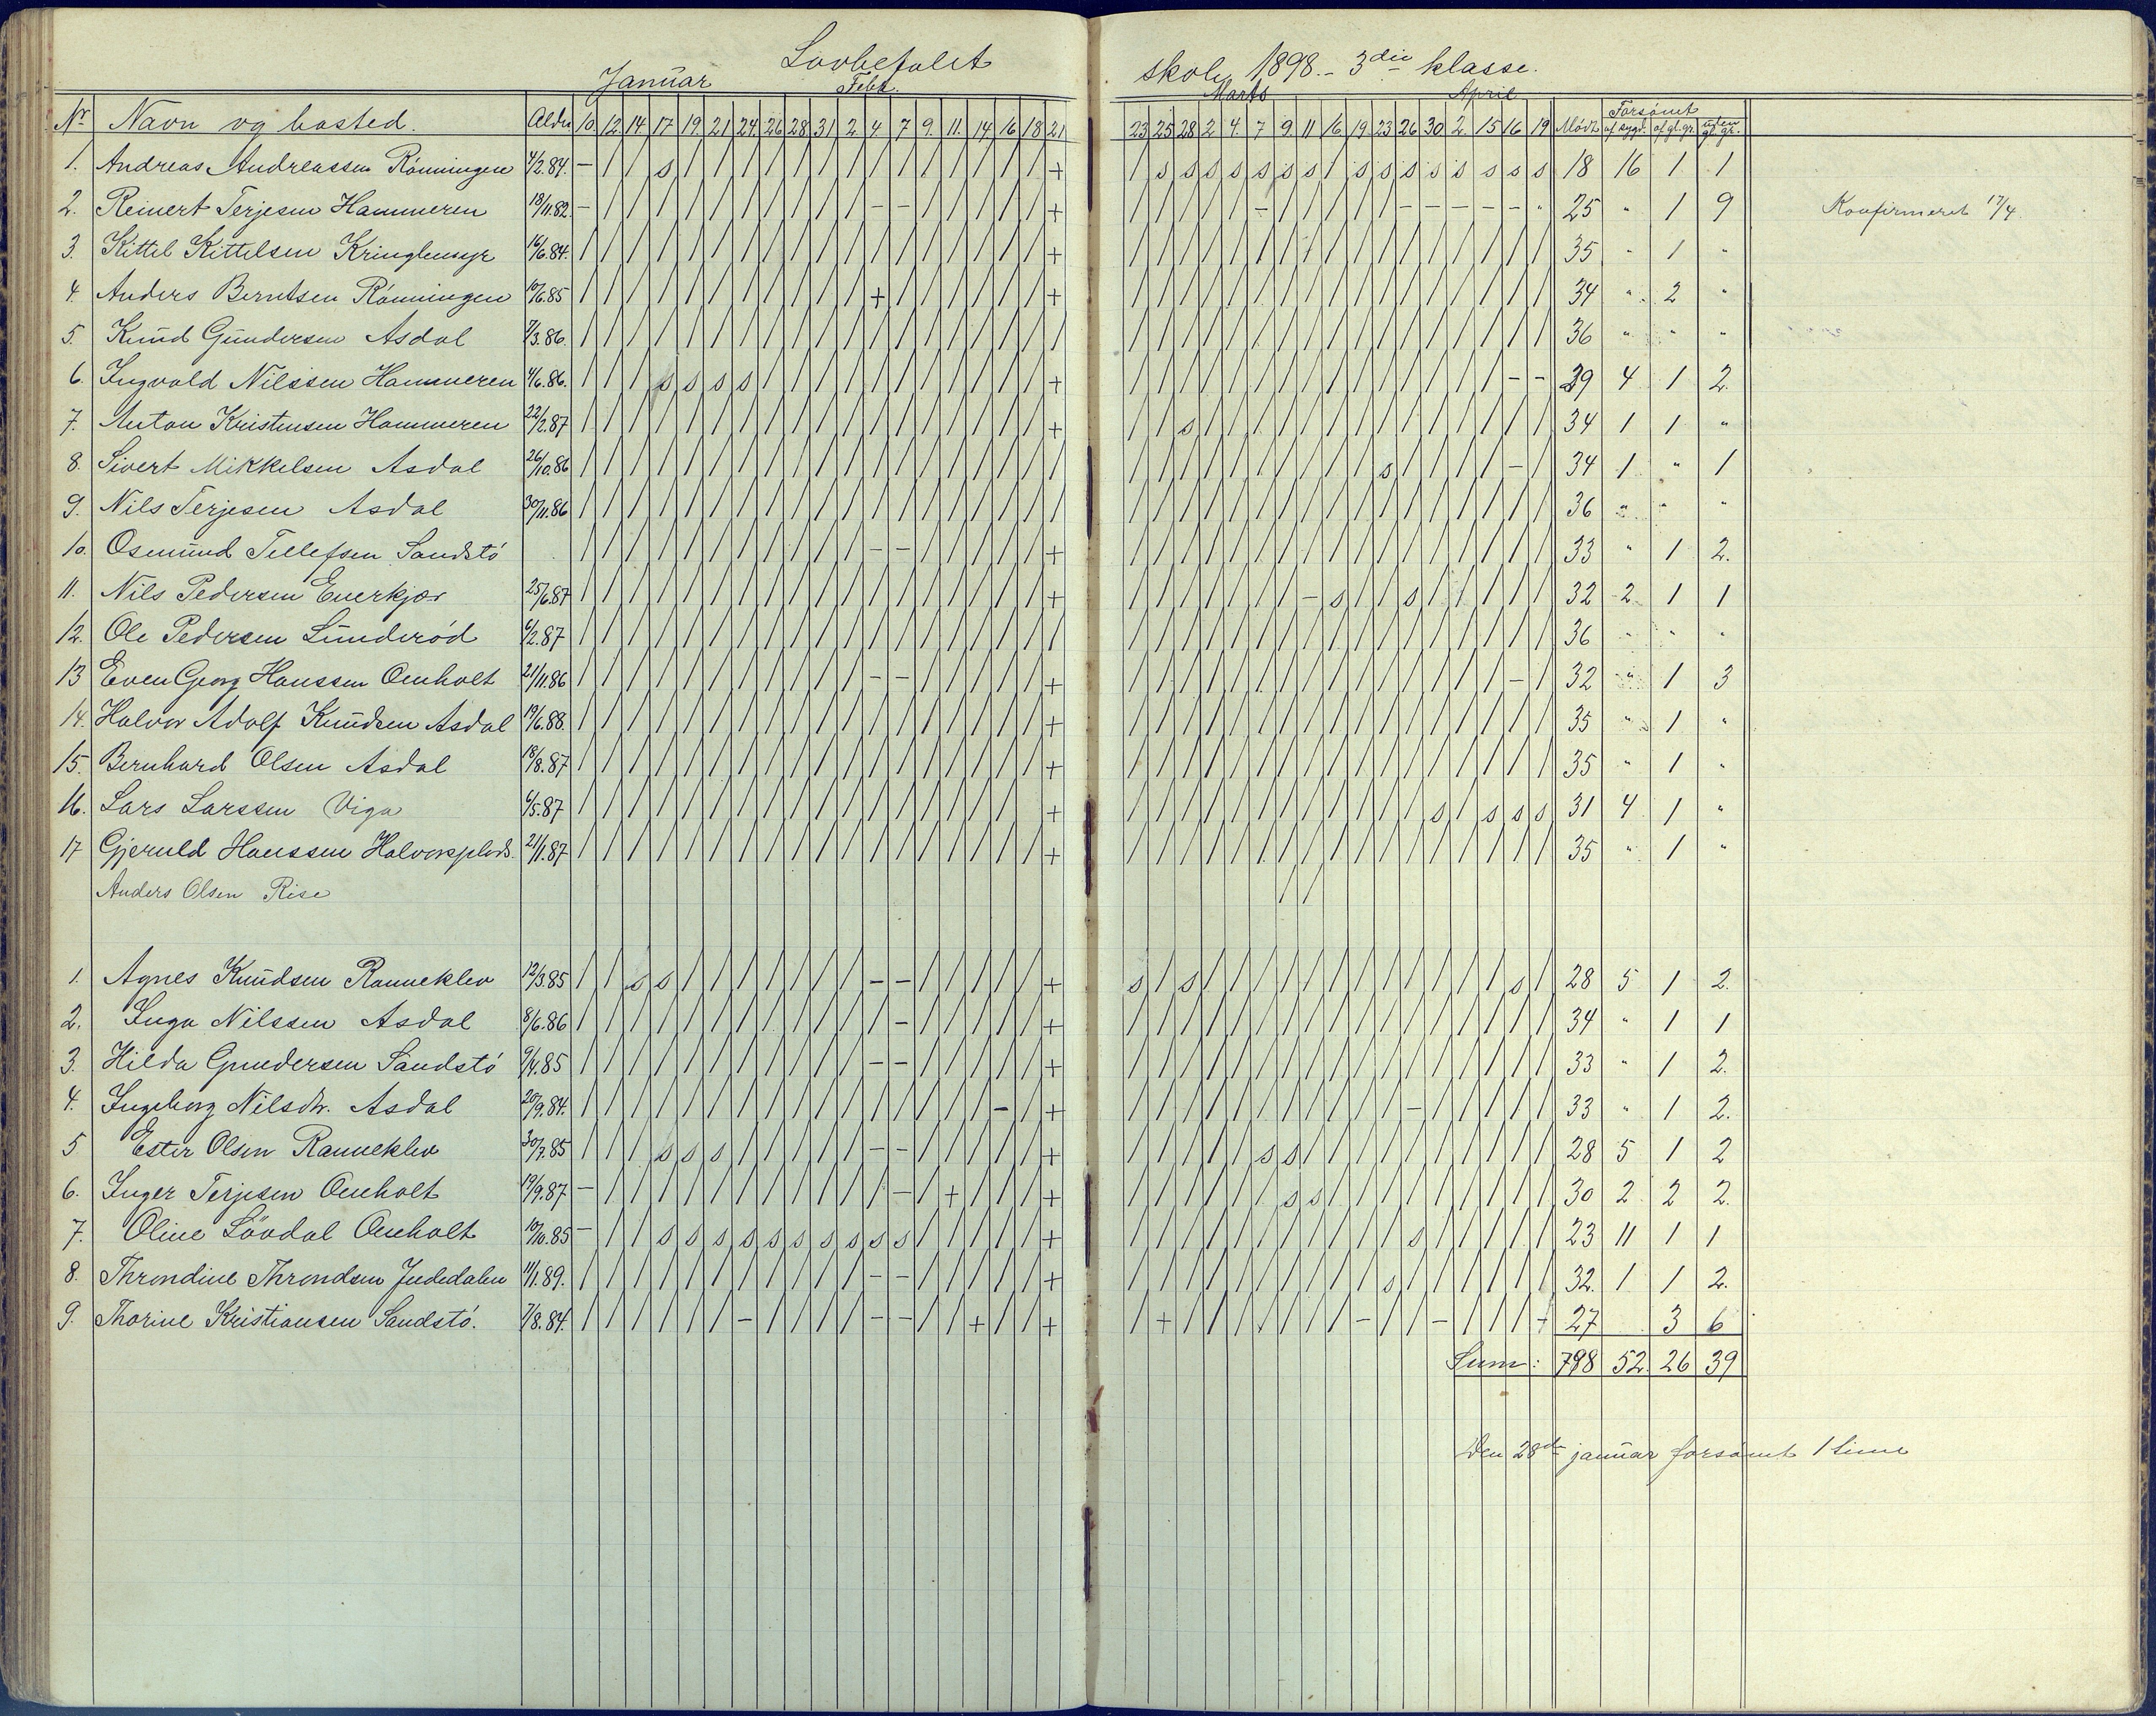 Lovbefalet skole 1898. - 3die klasse.
Januar Febr. Marts April
Nr Navn og bosted. Alder 10 12 14 17 19 21 24 26 28 31 2 4 7 9 11 14 16 18 21 23 25 28 2 4 7 9 11 16 19 23 26 30 2 15 16 19 Mödt Forsömt af sygd. af gl.gr. uden gl. gr.
1. Andreas Andreassen Rönningen 4/2.84. – / / s / / / / / / / / / / / / / / + / s s s s s s s / s s s s s s s s 18 16 1 1
2. Reinert Terjesen Hammeren 18/11.82. – / / / / / / / / / / – – / / / / / + / / / / / – / / / / / – – – – – " 25 " 1 9 Konfirmeret 17/4.
3. Kittil Kittelsen Kringlemyr 16/6.84. / / / / / / / / / / / / / / / / / / + / / / / / / / / / / / / / / / / / 35 " 1 "
4. Anders Berntsen Rönningen 10/6.85 / / / / / / / / / / / + / / / / / / + / / / / / / / / / / / / / / / / / 34 " 2 "
5. Knud Gundersen Asdal 7/3.86. / / / / / / / / / / / / / / / / / / / / / / / / / / / / / / / / / / / / 36 " " "
6. Ingvald Nilssen Hammeren 4/6.86. / / / s s s s / / / / / / / / / / / + / / / / / / / / / / / / / / / – – 29 4 1 2.
7. Anton Kristensen Hammeren 22/2.87 / / / / / / / / / / / / / / / / / / + / / s / / / / / / / / / / / / / / 34 1 1 "
8. Sivert Mikkelsen Asdal 26/10.86 / / / / / / / / / / / / / / / / / / / / / / / / / / / / / s / / / / – / 34 1 " 1
9. Nils Terjesen Asdal 30/11.86 / / / / / / / / / / / / / / / / / / / / / / / / / / / / / / / / / / / / 36 " " "
10. Osmund Tellefsen Sandstö / / / / / / / / / / / – – / / / / / + / / / / / / / / / / / / / / / / / 33 " 1 2.
11. Nils Pedersen Enerkjær 25/6.87 / / / / / / / / / / / / / / / / / / + / / / / / / / – s / / s / / / / / 32 2 1 1
12. Ole Pedersen Lunderöd 6/2.87 / / / / / / / / / / / / / / / / / / / / / / / / / / / / / / / / / / / / 36 " " "
13 Even Georg Hanssen Omholt 21/11.86 / / / / / / / / / / / – – / / / / / + / / / / / / / / / / / / / / / – / 32 " 1 3
14. Halvor Adolf Knudsen Asdal 19/6.88. / / / / / / / / / / / / / / / / / / + / / / / / / / / / / / / / / / / / 35 " 1 "
15. Bernhard Olsen Asdal 18/8.87 / / / / / / / / / / / / / / / / / / + / / / / / / / / / / / / / / / / / 35 " 1 "
16. Lars Larssen Viga 6/5.87 / / / / / / / / / / / / / / / / / / + / / / / / / / / / / / / s / s s s 31 4 1 "
17 Gjeruld Hanssen Halvorsplads. 21/11.87 / / / / / / / / / / / / / / / / / / + / / / / / / / / / / / / / / / / / 35 " 1 "
Anders Olsen Rise / /
1. Agnes Knudsen Ranneklev 12/3.85 / / s s / / / / / / / – – / / / / / + s / s / / / / / / / / / / / / s / 28 5 1 2.
2. Inga Nilssen Asdal 8/6.86 / / / / / / / / / / / / – / / / / / + / / / / / / / / / / / / / / / / / 34 " 1 1
3. Hilda Gundersen Sandstö 9/4.85 / / / / / / / / / / / – – / / / / / + / / / / / / / / / / / / / / / / / 33 " 1 2.
4. Ingeborg Nilsdtr. Asdal 20/9.84. / / / / / / / / / / / / / / / / – / + / / / / / / / / / / / – / / / / / 33 " 1 2.
5 Ester Olsen Ranneklev 30/7.85 / / / s s s / / / / / – – / / / / / + / / / / / s s / / / / / / / / / / 28 5 1 2
6. Inger Terjesen Omholt 19/9.87 – / / / / / / / / / / / – / + / / / + / / / / / / s s / / / / / / / / / 30 2 2 2.
7. Oline Lövdal Omholt 10/10.85 – / / s s s s s s s s s s / / / / / + / / / / / / / / / / / s / / / / / 23 11 1 1
8. Throndine Throndsen Jydedalen 11/1.89. / / / / / / / / / / / – – / / / / / + / / / / / / / / / / s / / / / / / 32. 1 1 2.
9. Thorine Kristiansen Sandstö. 7/8.84. / / / / / / – / / / / – – / / + / / + / + / / / / / / / – / / – / / / + 27 3 6
Sum: 798 52. 26 39
Den 28de januar forsömt 1 time